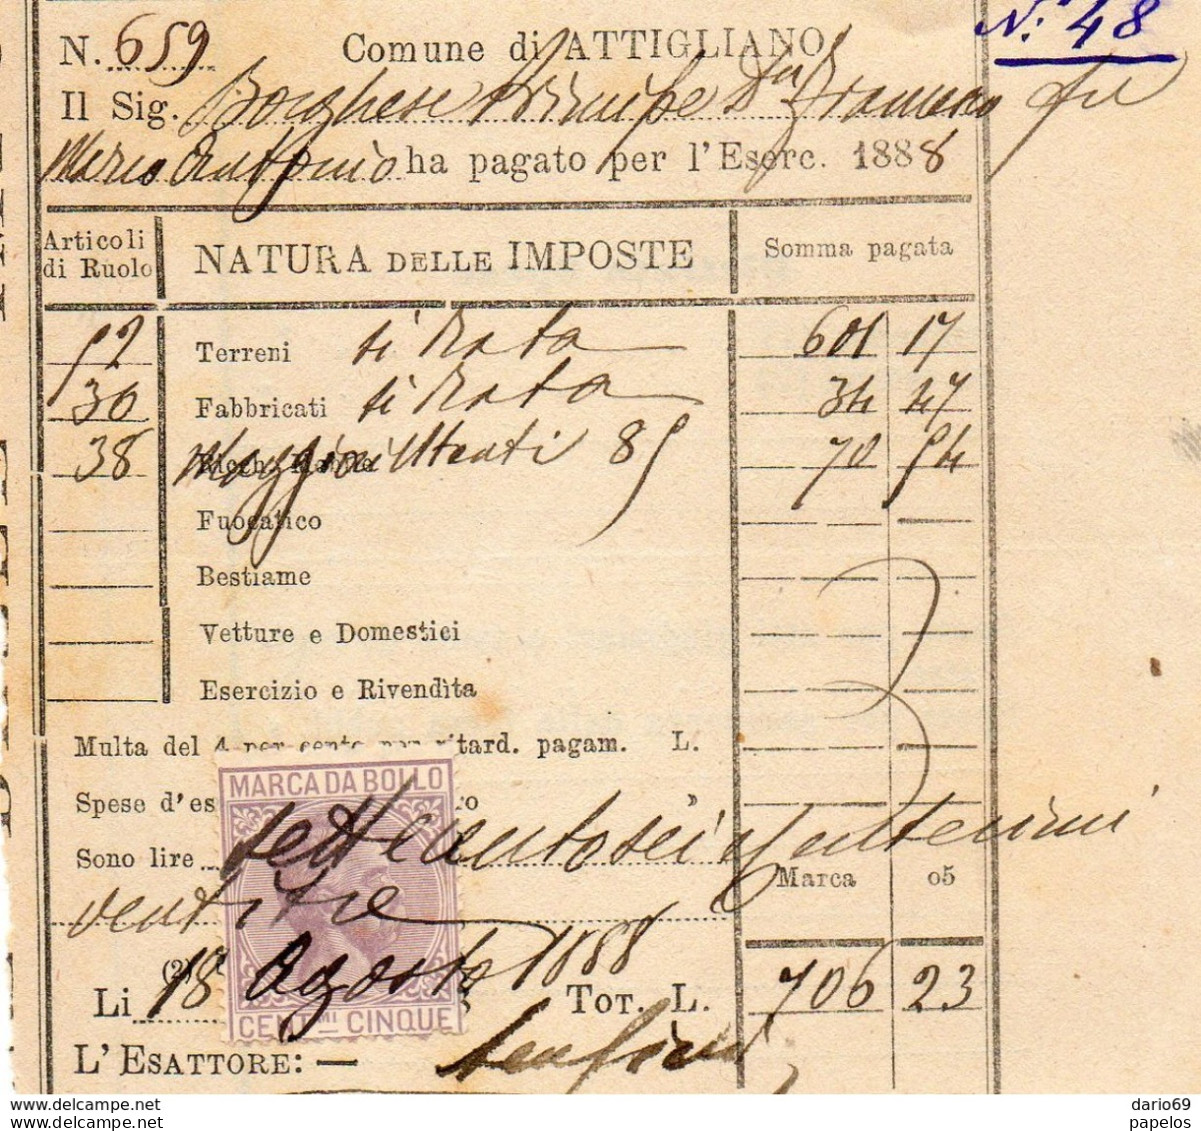 N. 659 Comune di ATTIGLIANO N. 48
Il Sig. Borghese Principe Dn Francesco fu
Marco Antonio ha pagato per l'Eserc. 1888
Articoli di Ruolo NATURA DELLE IMPOSTE Somma pagata
92 Terreni Rata 601 17
30 Fabbricati Rata 34 47
38 Maggiori Utenti 85 70 54
Fuocatico
Bestiame
Vetture e Domestici
Esercizio e Rivendita
Multa del 4 per cento per ritard. pagam. L.
Spese d'es ro »
MARCA DA BOLLO
Sono lire settecentosei e centesimi
Marca 05
ventitre
(2)
Li 18 Agosto 1888 TOT. L. 706 23
CENT.MI CINQUE
L'ESATTORE: —
dario69
papelos